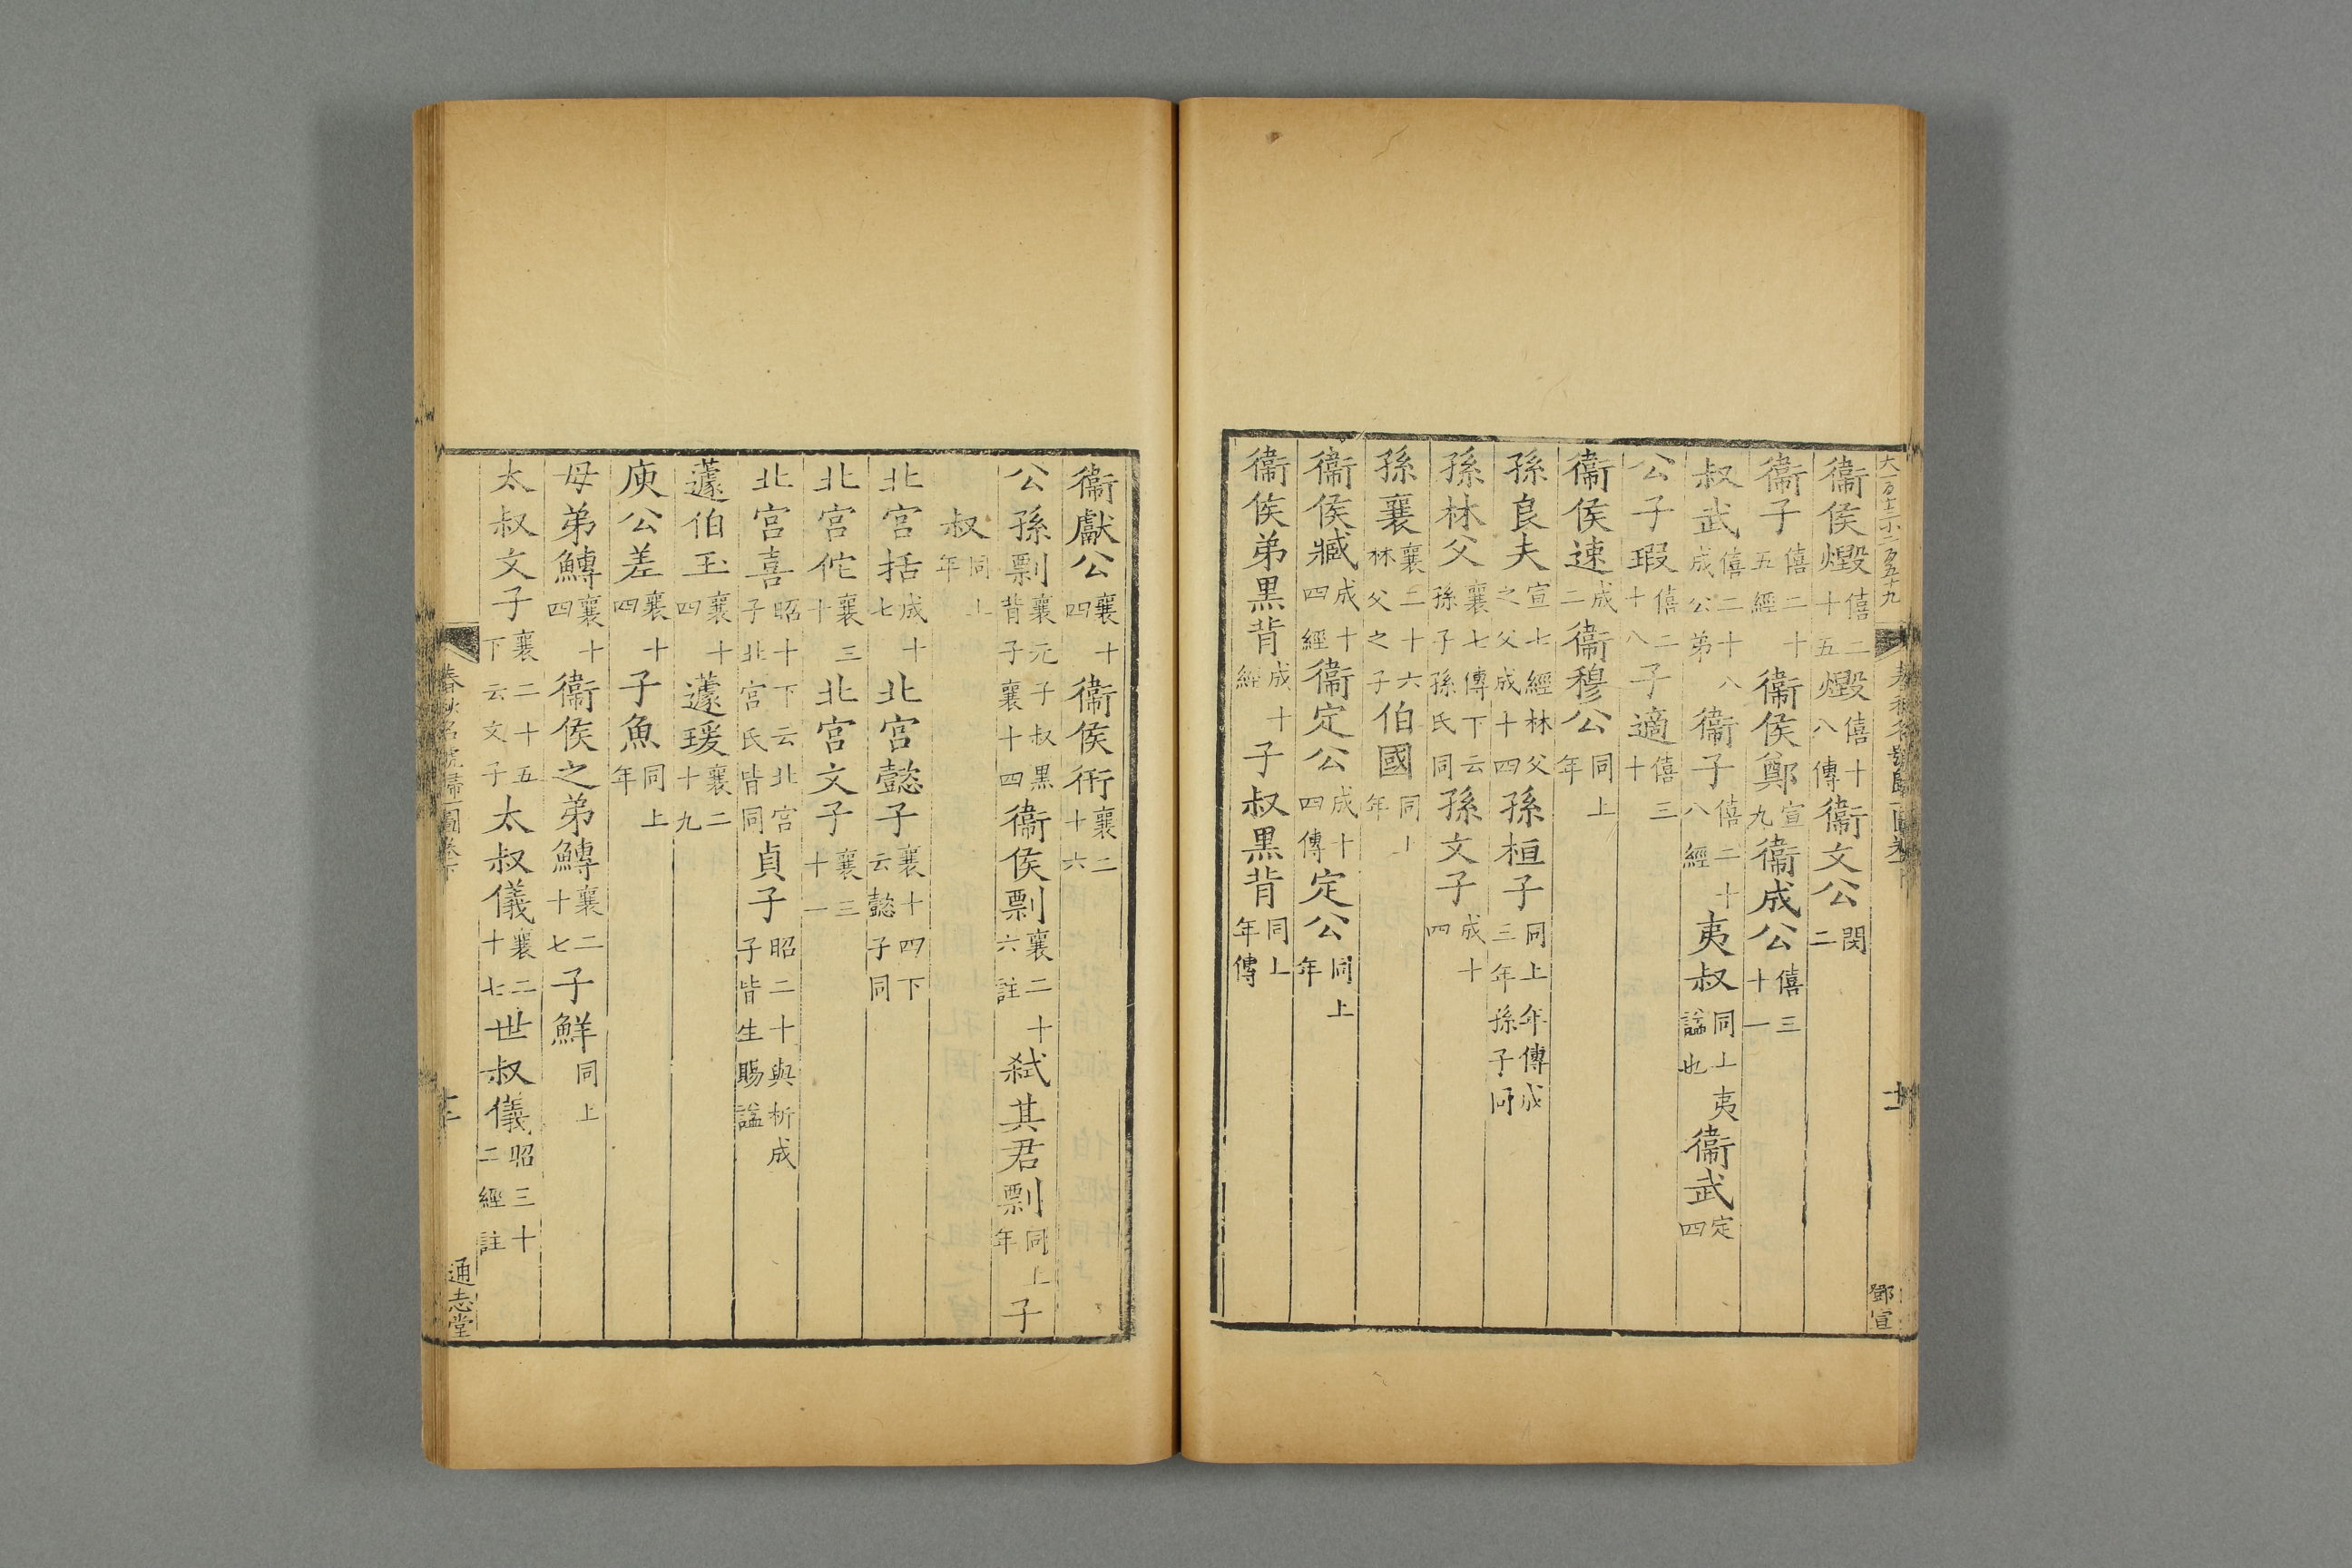 衞侯燬僖二十五燬僖十八傳衞文公閔二
衞子僖二十五經衞侯鄭宣九衞成公僖三十一
叔武僖二十八成公弟衞子僖二十八經夷叔同上夷謚也衞武定四
公子瑕僖二十八子適僖三十
衞侯速成二衞穆公同上年
孫良夫宣七經林父之父成十四孫桓子同上年傳成三年孫子同
孫林父襄七傳下云孫子孫氏同孫文子成十四
孫襄襄二十六林父之子伯國同上年
衞侯臧成十四經衞定公成十四傳定公同上年
衞侯弟黑背成十經子叔黑背同上年傳
鄧宣
衞獻公襄十四衞侯衎襄二十六
公孫剽襄元子叔黑背子襄十四衞侯剽襄二十六註弒其君剽同上年子
叔同上年
北宮括成十七北宮懿子襄十四下云懿子同
北宮佗襄三十北宮文子襄三十一
北宮喜昭十下云北宮子北宮氏皆同貞子昭二十與析成子皆生賜謚
蘧伯玉襄十四蘧瑗襄二十九
庾公差襄十四子魚同上年
母弟鱄襄十四衞侯之弟鱄襄二十七子鮮同上
太叔文子襄二十五下云文子太叔儀襄二十七世叔儀昭三十二經註
春秋名號歸一圖卷下
十一
通志堂